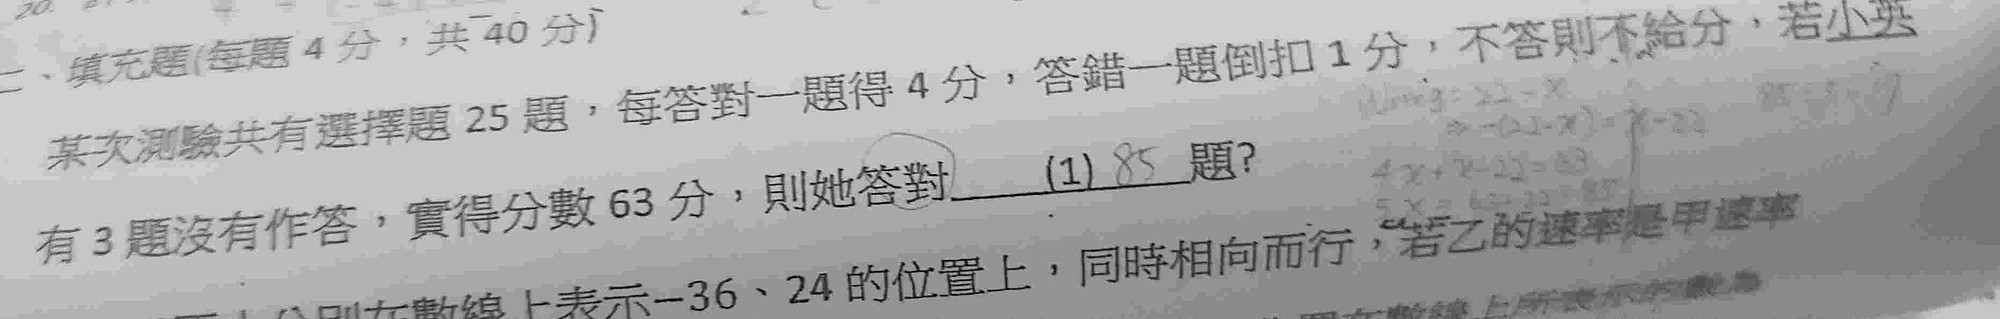 20.
二、填充題(每題 4 分，共 40 分)
某次測驗共有選擇題 25 題，每答對一題得 4 分，答錯一題倒扣 1 分，不答則不給分，若小英
有 3 題沒有作答，實得分數 63 分，則她答對 (1) 85 題?
Wrong = 22 - x
⇒ -(22-x) = x-22
4x + x - 22 = 63
分別在數線上表示−36、24 的位置上，同時相向而行，若乙的速率是甲速率
在數線上所表示的數為